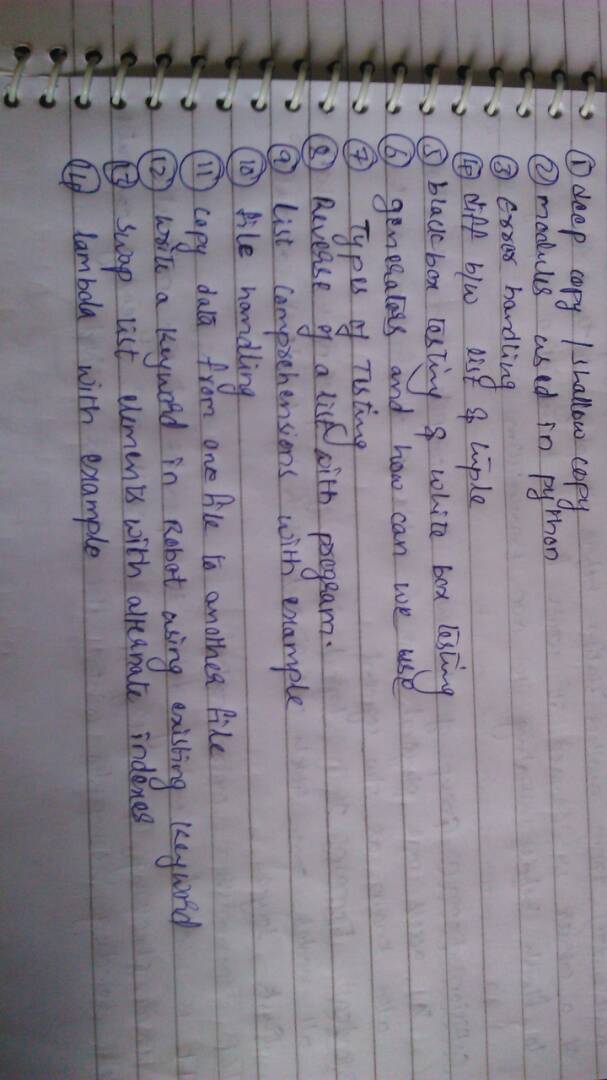 ① deep copy / shallow copy
② modules used in python
③ error handling
④ diff b/w list & tuple
⑤ black box testing & white box testing
⑥ generators and how can we use
⑦ Types of Testing
⑧ Reverse of a list with program.
⑨ list comprehensions with example
⑩ file handling
⑪ copy data from one file to another file
⑫ write a keyword in Robot using existing keyword
⑬ swap list elements with alternate indexes
⑭ lambda with example